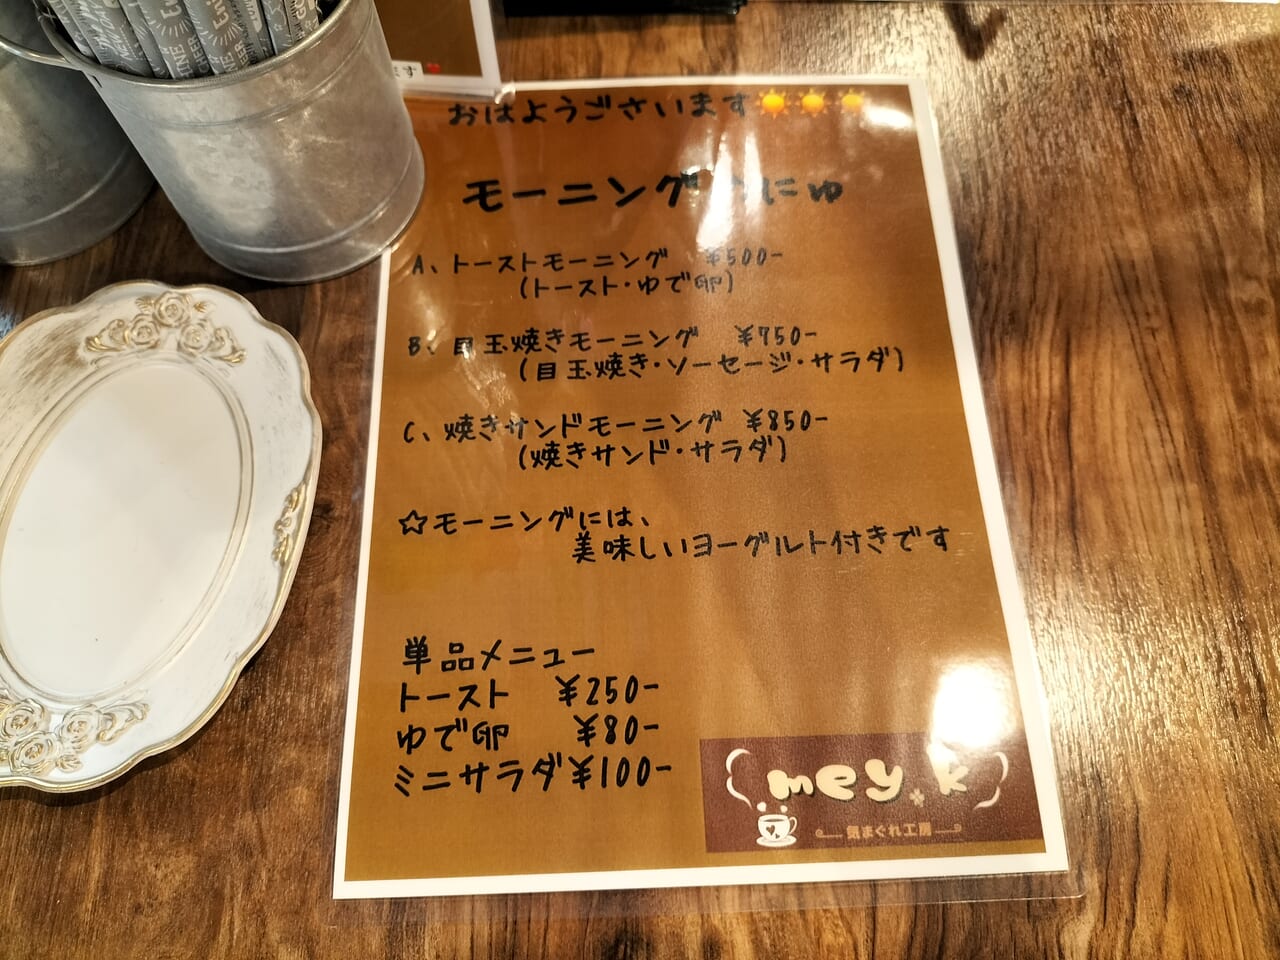 ます
おはようございます
モーニング にゅ
A、トーストモーニング ¥500-
(トースト・ゆで卵)
B、目玉焼きモーニング ¥750-
(目玉焼き・ソーセージ・サラダ)
C、焼きサンドモーニング ¥850-
(焼きサンド・サラダ)
☆モーニングには、
美味しいヨーグルト付きです
単品メニュー
トースト ¥250-
ゆで卵 ¥80-
ミニサラダ ¥100-
mey.k
気まぐれ工房